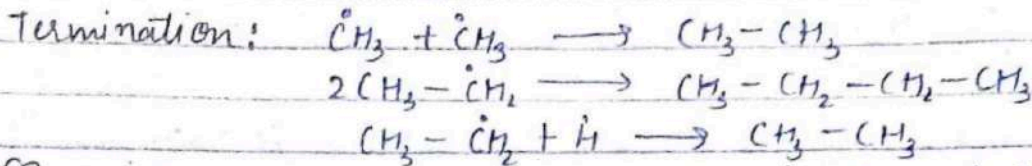 Termination: ĊH₃ + ĊH₃ ⟶ CH₃ – CH₃
2CH₃ – ĊH₂ ⟶ CH₃ – CH₂ – CH₂ – CH₃
CH₃ – ĊH₂ + Ḣ ⟶ CH₃ – CH₃